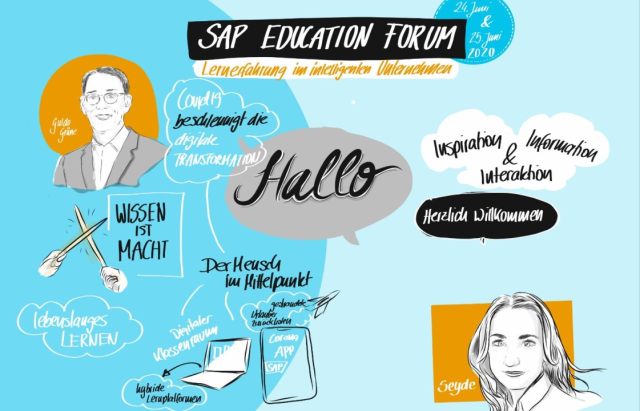 SAP EDUCATION FORUM
24. Juni
&
25. Juni
2020
Lernerfahrung im intelligenten Unternehmen
Guido
Grüne
Covid 19
beschleunigt die
digitale
TRANSFORMATION
Hallo
Inspiration
&
Information
Interaktion
Herzlich Willkommen
WISSEN
IST
MACHT
Der Mensch
im Mittelpunkt
lebenslanges
LERNEN
Digitaler
Klassenraum
gestrandete
Urlauber
zurückholen
Corona
APP
SAP
hybride
Lernplattformen
Seyde